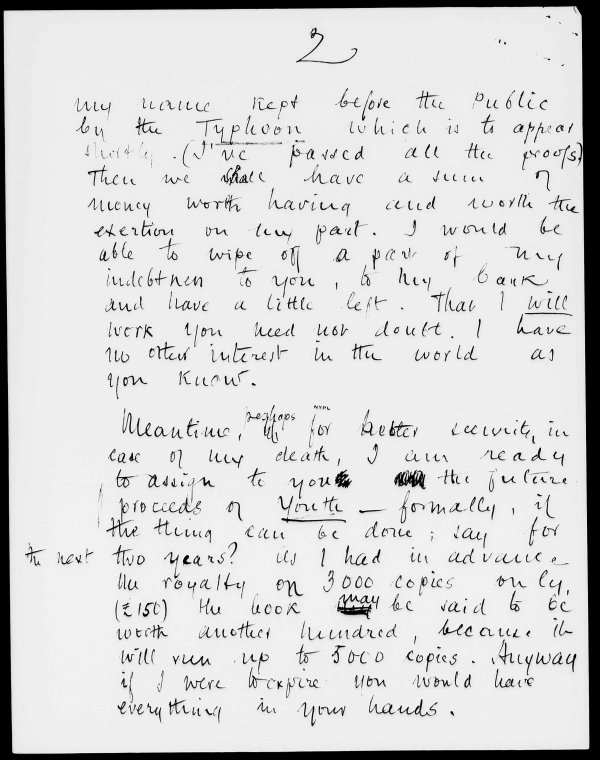 2
my name kept before the Public
by the Typhoon which is to appear
shortly. (I've passed all the proofs)
Then we shall have a sum of
money worth having and worth the
exertion on my part. I would be
able to wipe off a part of my
indebtness to you, to my bank
and have a little left. That I will
work you need not doubt. I have
no other interest in the world as
you know.
Meantime, perhaps for better security, in
NYPL
case of my death, I am ready
to assign to you the future
proceeds of Youth — formally, if
the thing can be done; say for
the next two years? As I had in advance
the royalty on 3000 copies only,
(£150) the book may be said to be
worth another hundred, because it
will run up to 5000 copies. Anyway
if I were to expire you would have
everything in your hands.